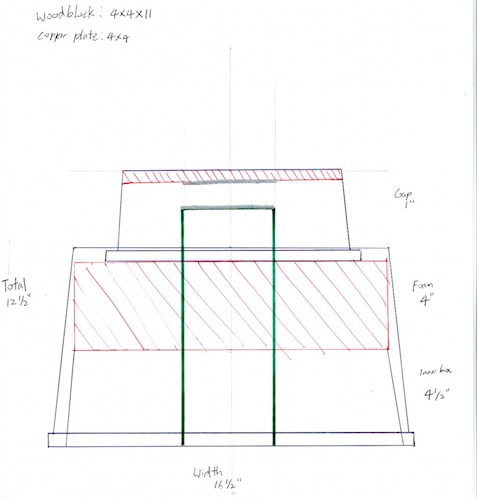 Woodblock: 4x4x11
Copper plate: 4x4
Gap
1"
Total
12 1/2"
Foam
4"
Inner box
4 1/2"
Width
16 1/2"